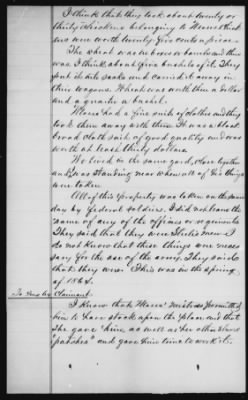 I think that they took about twenty or
thirty chickens belonging to Moses think
one were worth twenty five cents a piece.
The wheat was in boxes or barrels and there
was I think about five bushels of it. They
put it into sacks and carried it away in
their wagons. Wheat was worth then a dollar
and a quarter a bushel.
Moses had a fine suit of clothes and they
took them away with them. It was a black
broad cloth suit of good quality and was
worth at least thirty dollars.
We lived in the same yard, close together
and I was standing near when all of his things
were taken.
All of this property was taken on the same
day by Federal soldiers. I did not learn the
name of any of the officers or regiments.
They said that they were men I
do not know that these things were neces
sary for the use of the army. They said
that they were. This was in the spring
of 1864.
To Ques by Claimant
I know that Moses' mistress permitted
him to have stock upon the place and that
she gave him as well as her other slaves
"patches" and gave him time to work it.